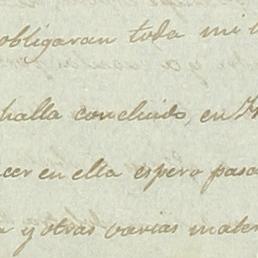 obligaran toda mi
halla concluido, en
cer en ella espero pasa
y otras varias mater